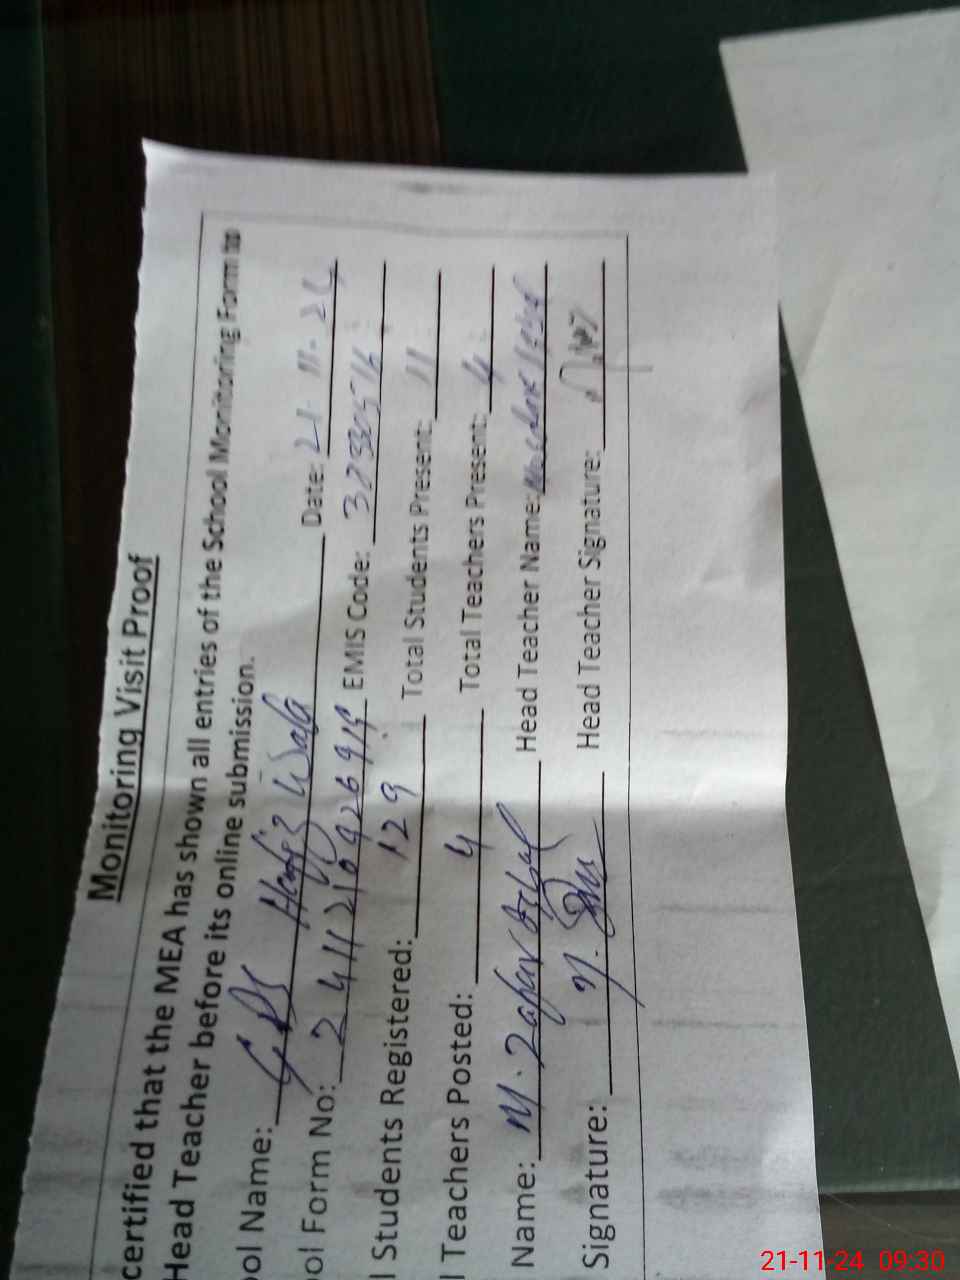 Monitoring Visit Proof
certified that the MEA has shown all entries of the School Monitoring Form to
Head Teacher before its online submission.
ool Name: GPS Hafiz Wala Date: 21-11-24
ool Form No: EMIS Code:
l Students Registered: 129 Total Students Present: 11
l Teachers Posted: 4 Total Teachers Present: 4
Name: M. Zafar Iqbal Head Teacher Name:
Signature: Head Teacher Signature:
21-11-24 09:30